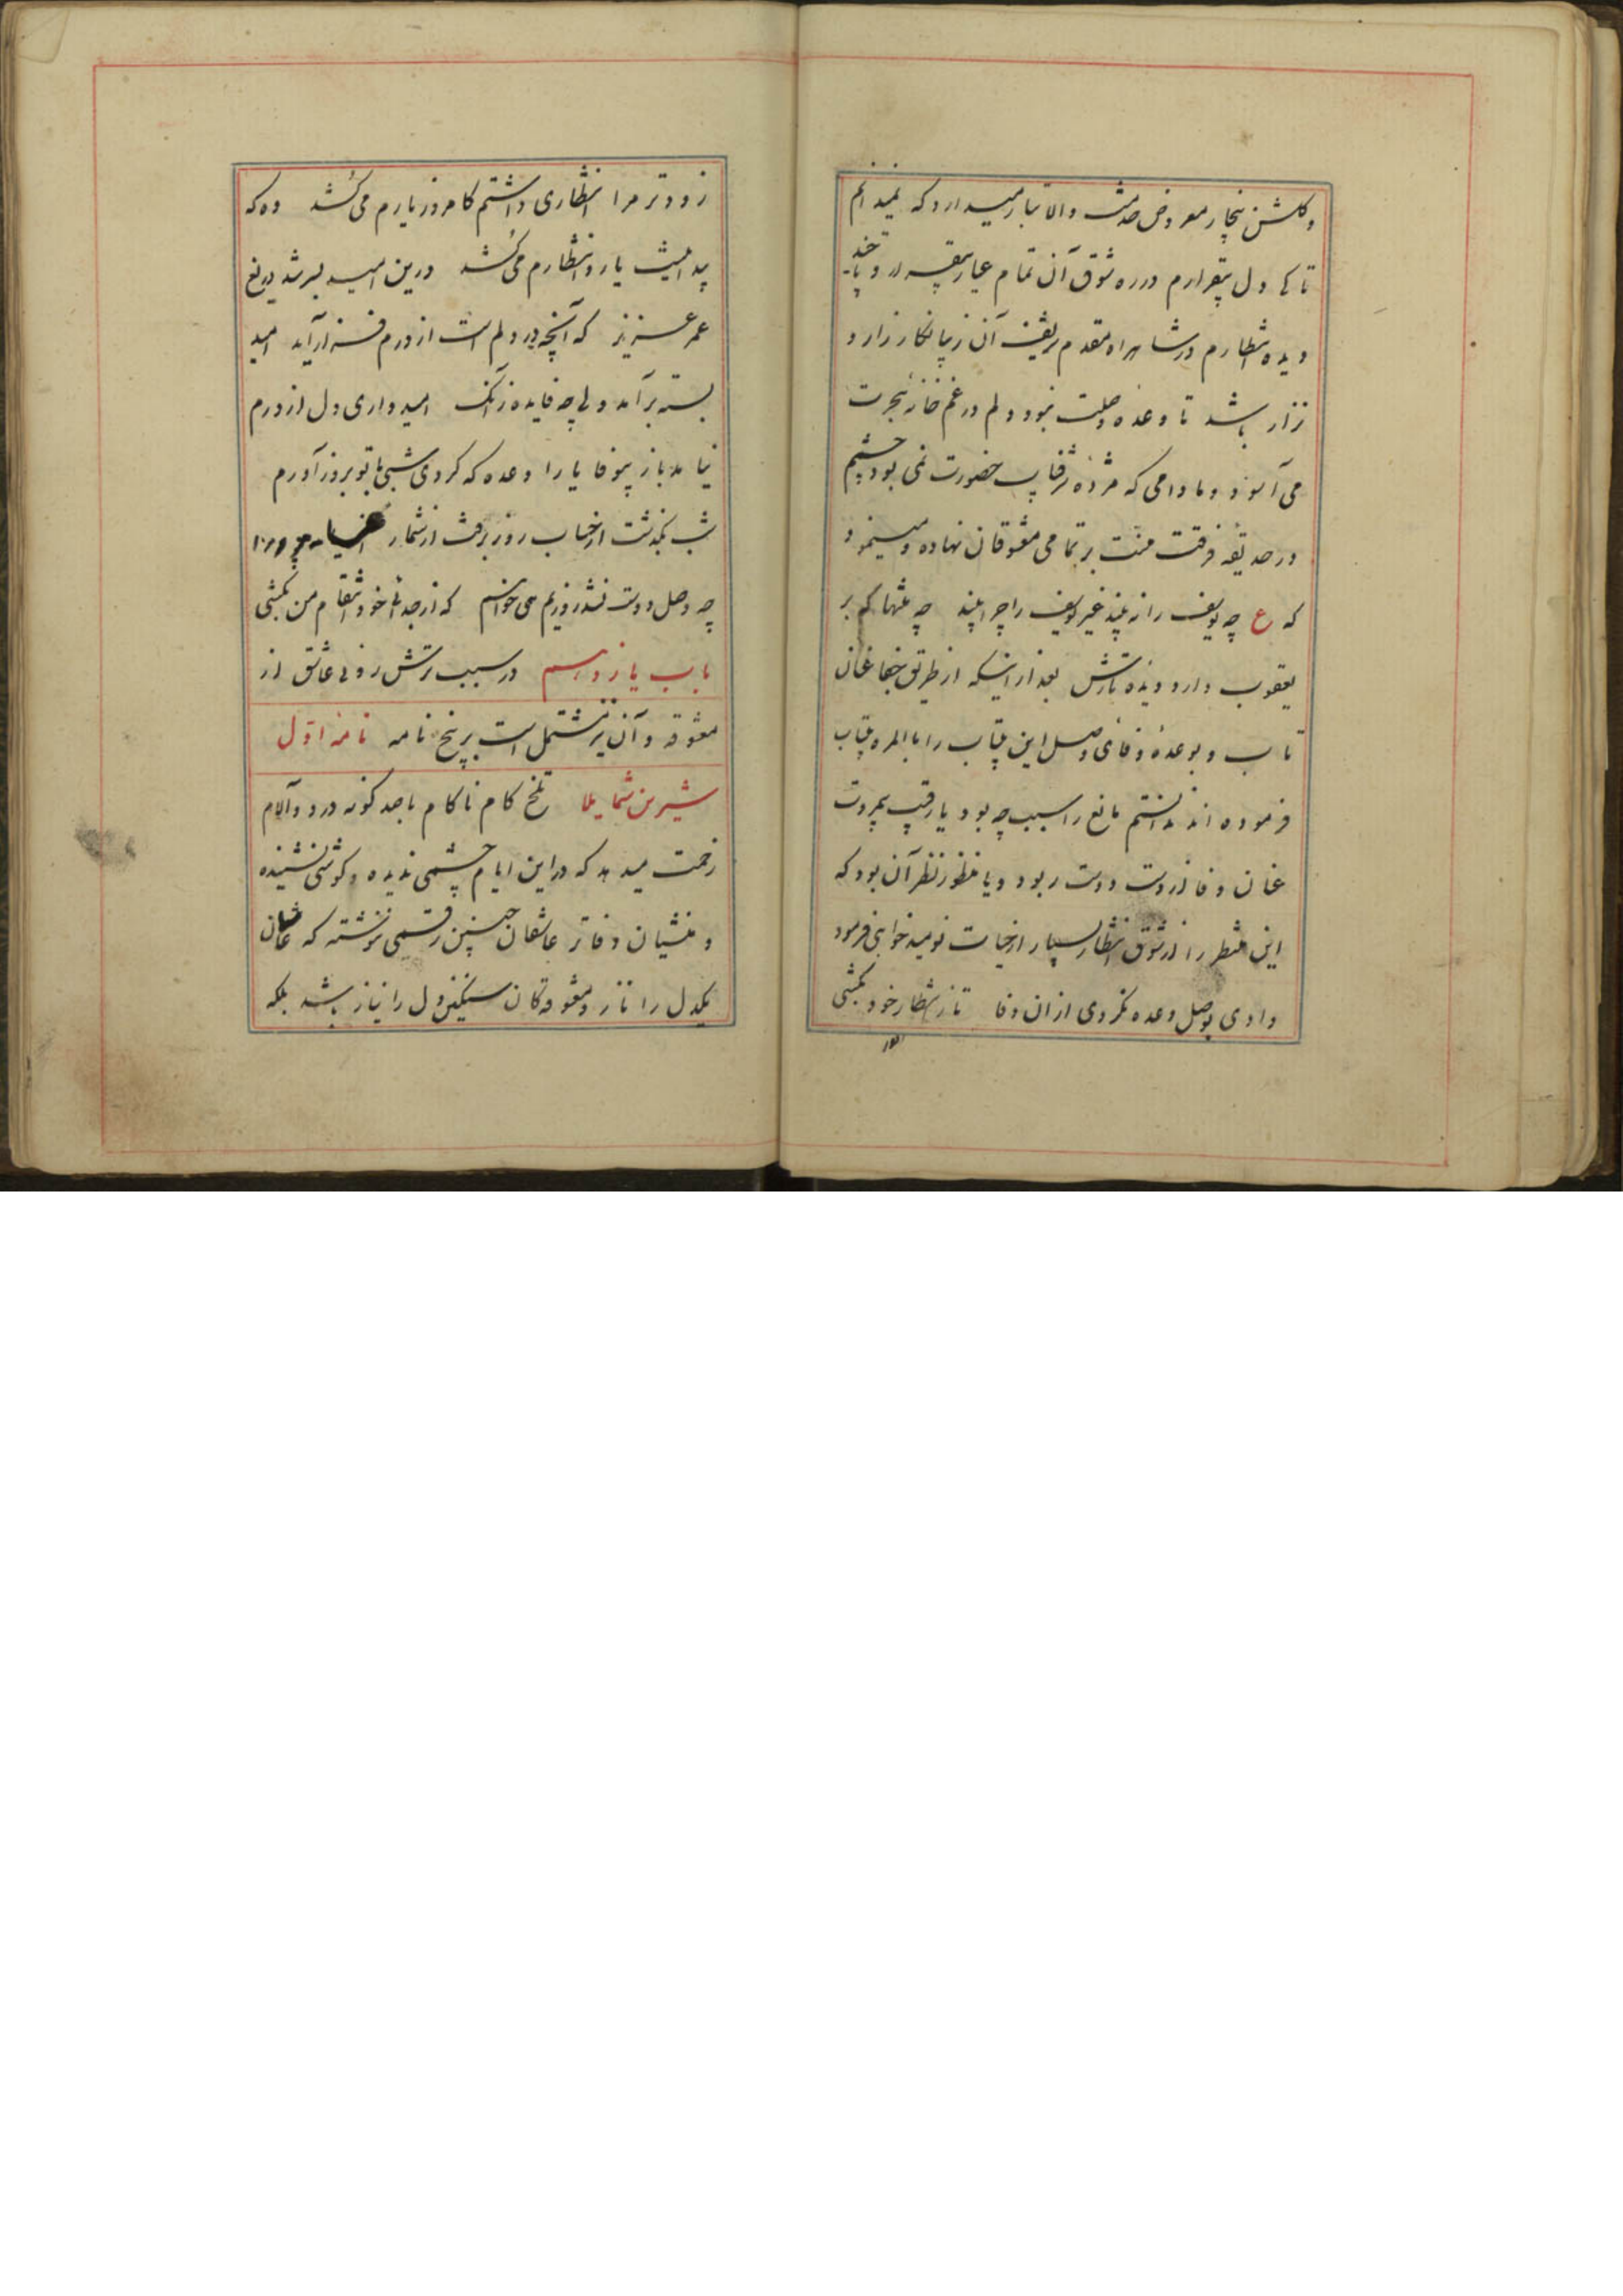 و گلشن بیخار معروض خدمت والا تبار میدارد که نمیدانم
تا کی دل بیقرارم در ره شوق آن تمام عیار بیقرار و تا چند
دیده انتظارم در شاهراه مقدم شریف آن زیبا نگار زار و
نزار باشد تا وعده وصلت نبود دلم در غمخانه هجرت
می آسود و مادامی که مژده شرفیاب حضورت نمی بود چشم
در حدیقه فرقت منت بر تمامی معشوقان نهاده و مینمود
که ع چه یوسف را نه بیند غیر یوسف را چرا بیند چه منتها که بر
یعقوب دارد دیده تارش بعد از اینکه از طریق جفا عنان
تاب و بوعده وفای وصل این بیتاب را بالمره بیتاب
فرموده اند ندانستم مانع را سبب چه بود یا رقیب بمروت
عنان وفا از دست دوست ربود و یا منظور نظر آن بود که
این منتظر را از شوق انتظار بسیار از حیات نومید خواهی فرمود
دادی بوصل وعده نکردی از ان وفا تا ز انتظار خود بکشی
زودتر مرا انتظاری داشتم کامروز یارم می کُشد وه که
پیدا نیست یار و انتظارم می کُشد درین امید بسر شد دریغ
عمر عزیز که آنچه در دلم است از درم فراز آید امید
بسته برآمد ولی چه فایده زآنک امیدواری دل از درم
نیامد باز بیوفا یارا وعده که کردی شبی با تو بروز آورم
شب بگذشت از حساب روز برفت از شمار
چه وصل دوست نشد روزیم همی خواهم که از جدائی خود انتقام من بکشی
باب یازدهم در سبب ترش روئی عاشق از
معشوقه و آن نیز مشتمل است بر پنج نامه نامه اوّل
شیرین شمایلا تلخ کام ناکام با صد گونه درد و آلام
زحمت میدهد که در این ایام چشمی ندیده و گوشی نشنیده
و منشیان دفاتر عاشقان چنین رقمی ننوشته که عاشقان
یکدل را ناز و معشوقکان سنگین دل را نیاز باشد بلکه